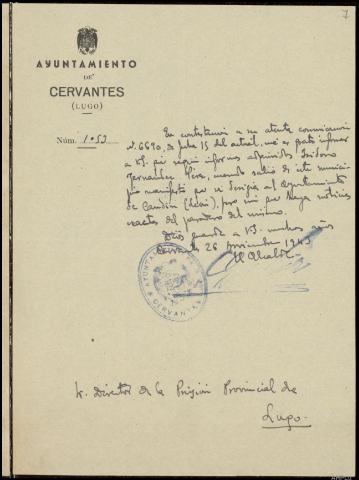 7
AYUNTAMIENTO
DE
CERVANTES
(LUGO)
Núm. 1.053
En contestacion a su atenta comunicacion
nº 6690, de fecha 15 del actual, me es grato informar
a VS. que segun informes adquiridos Isidoro
Fernandez, cuando salio de este municipio
manifesto que se dirigia al Ayuntamiento
de Candin (León), pero sin que haya noticias
exactas del paradero del mismo.
Dios guarde a VS. muchos años
Cervantes 26 noviembre 1943
El Alcalde
AYUNTAMIENTO
CERVANTES
Sr. Director de la Prisión Provincial de
Lugo.-